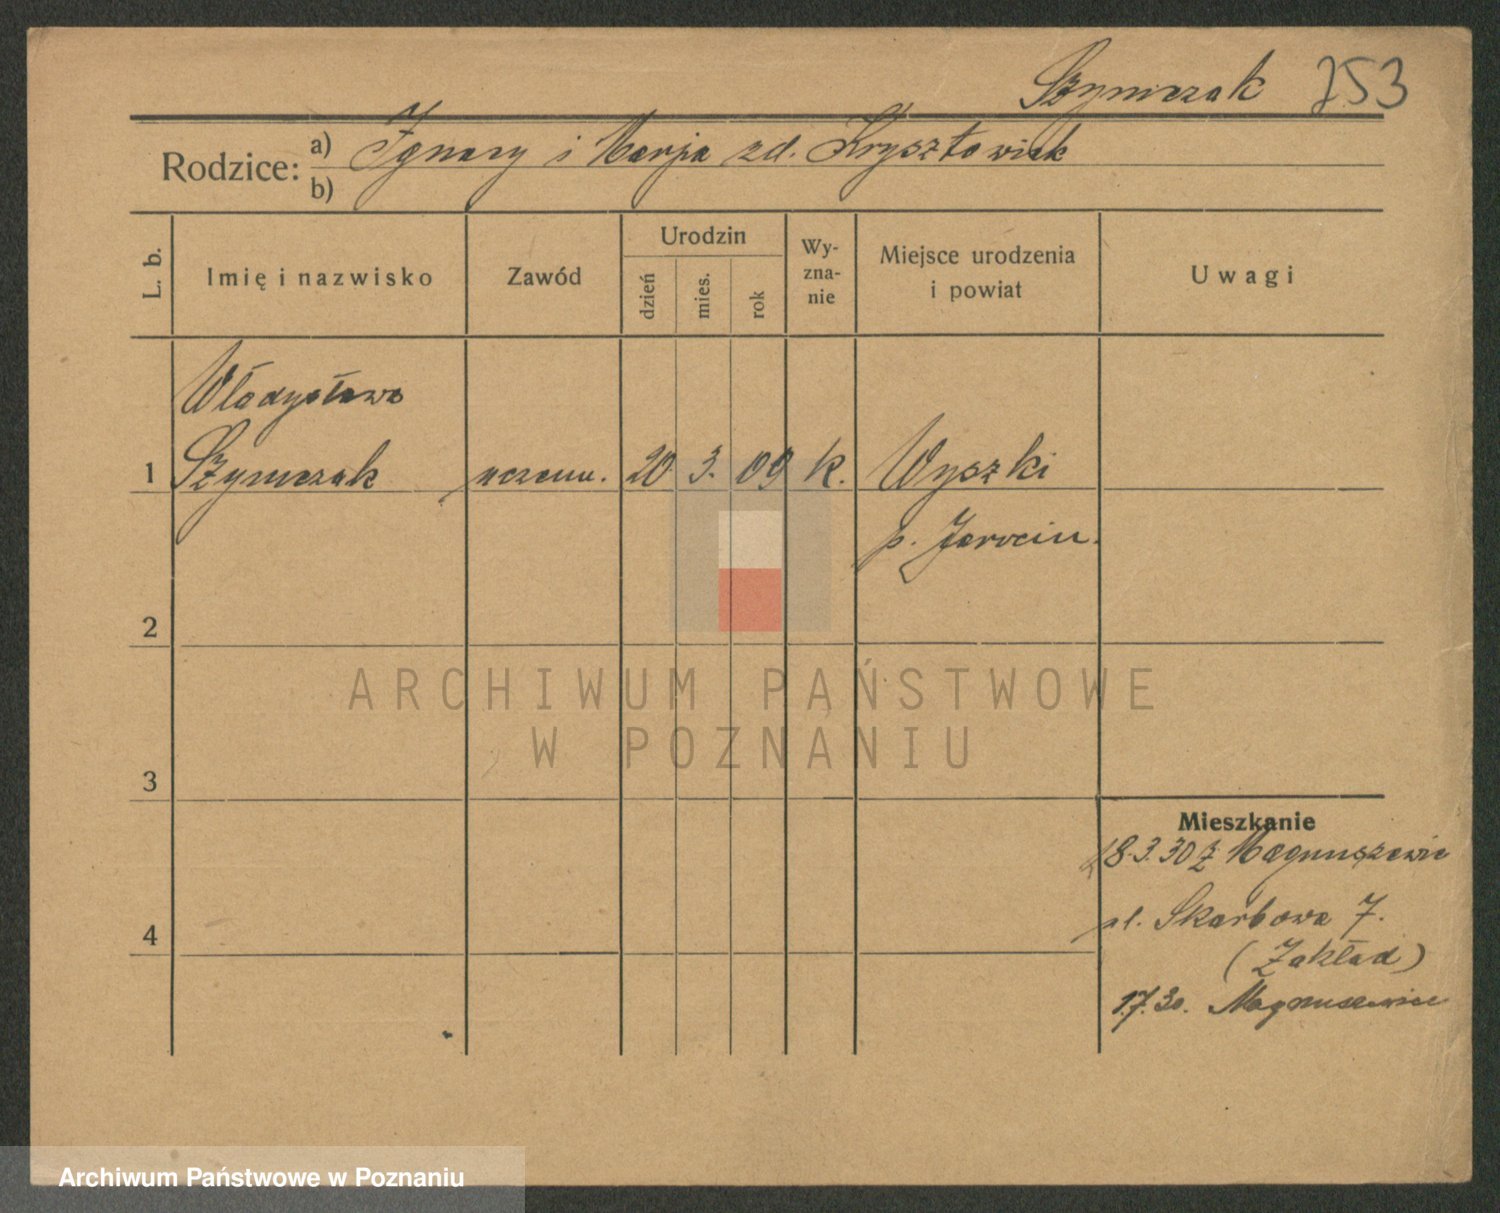 Szymczak 753
Rodzice: a) Ignacy i Marja zd. Krysztowiak
b)
L. b. Imię i nazwisko Zawód Urodzin dzień mies. rok Wyznanie Miejsce urodzenia i powiat Uwagi
Władysława
1 Szymczak uczenn. 20 3. 09 k. Wyszki
p. Jarocin.
2
ARCHIWUM PAŃSTWOWE
W POZNANIU
3
Mieszkanie
18.3.30 z Magnuszewic
ul. Skarbowa 7.
4
(Zakład)
1.7.30. Magnuszewice
Archiwum Państwowe w Poznaniu